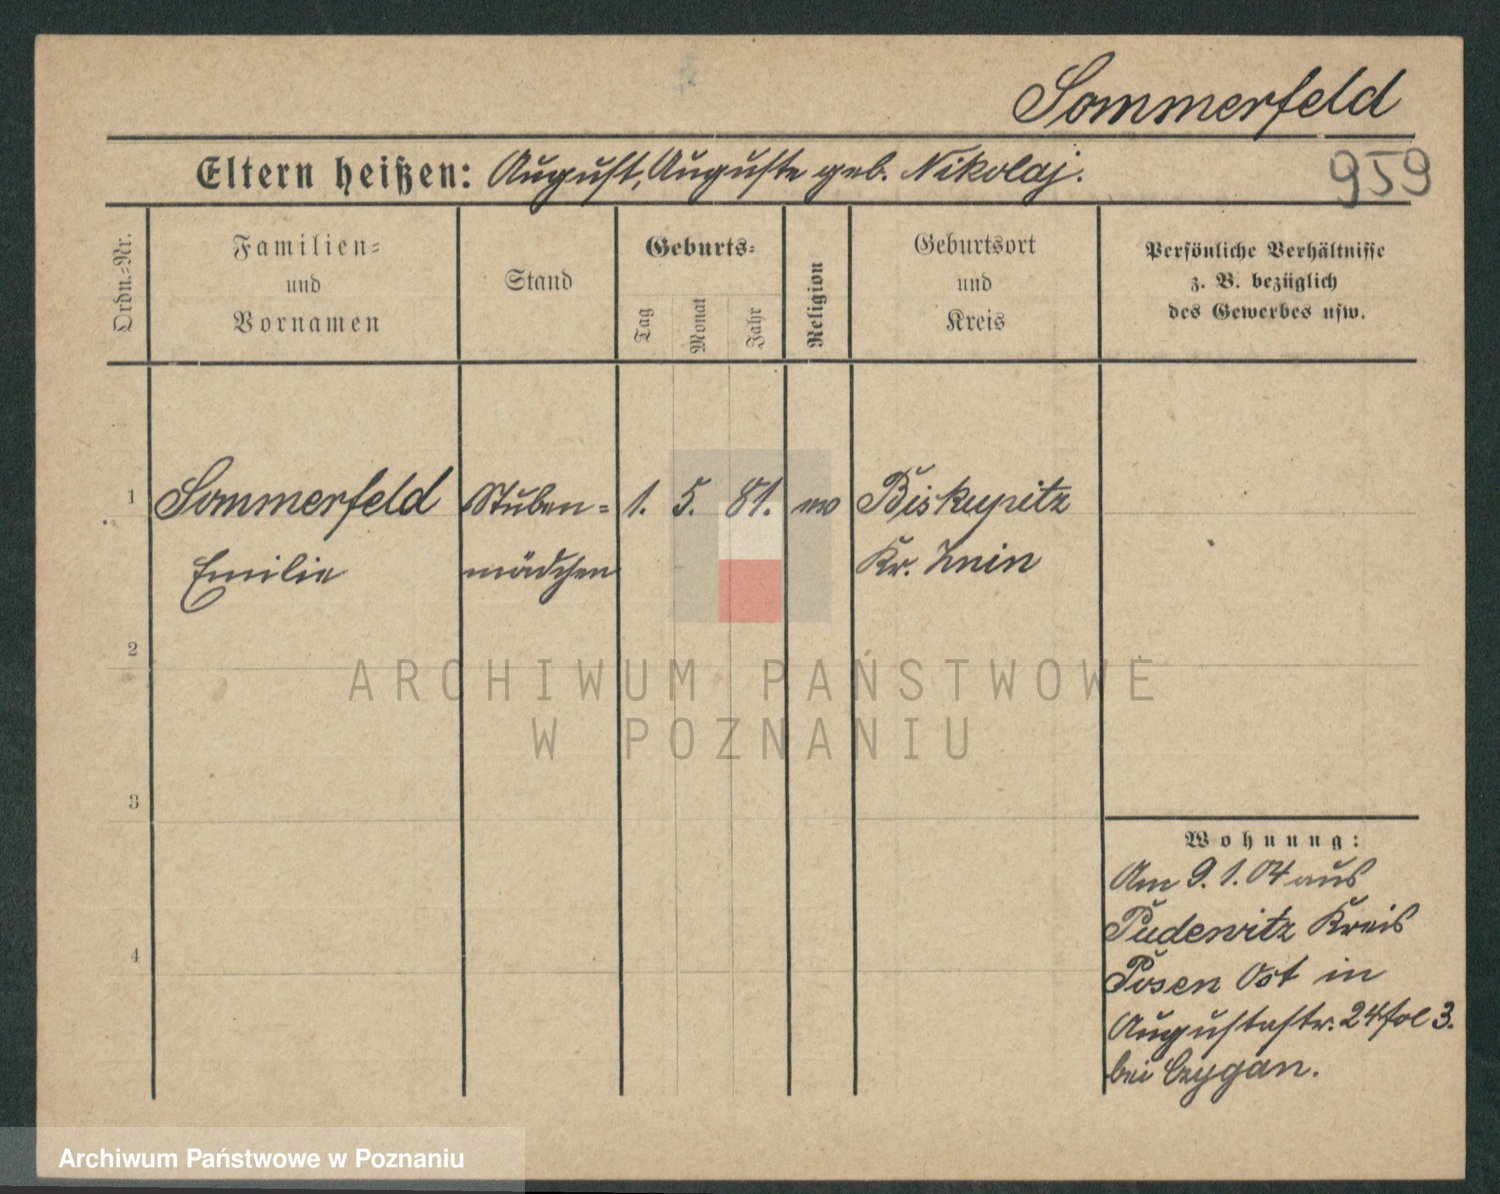 Sommerfeld
959
Eltern heißen: August, Auguste geb. Nikolaj.
Ordn.=Nr.
Familien=
und
Vornamen
Stand
Geburts=
Tag
Monat
Jahr
Religion
Geburtsort
und
Kreis
Persönliche Verhältnisse
z. B. bezüglich
des Gewerbes usw.
1
Sommerfeld
Emilie
Stuben=
mädchen
1. 5. 81.
Biskupitz
Kr. Znin
2
3
4
Wohnung:
Am 9. 1. 04 aus
Pudewitz Kreis
Posen Ost in
Augustastr. 24 fol 3.
bei Czygan.
ARCHIWUM PAŃSTWOWE
W POZNANIU
Archiwum Państwowe w Poznaniu